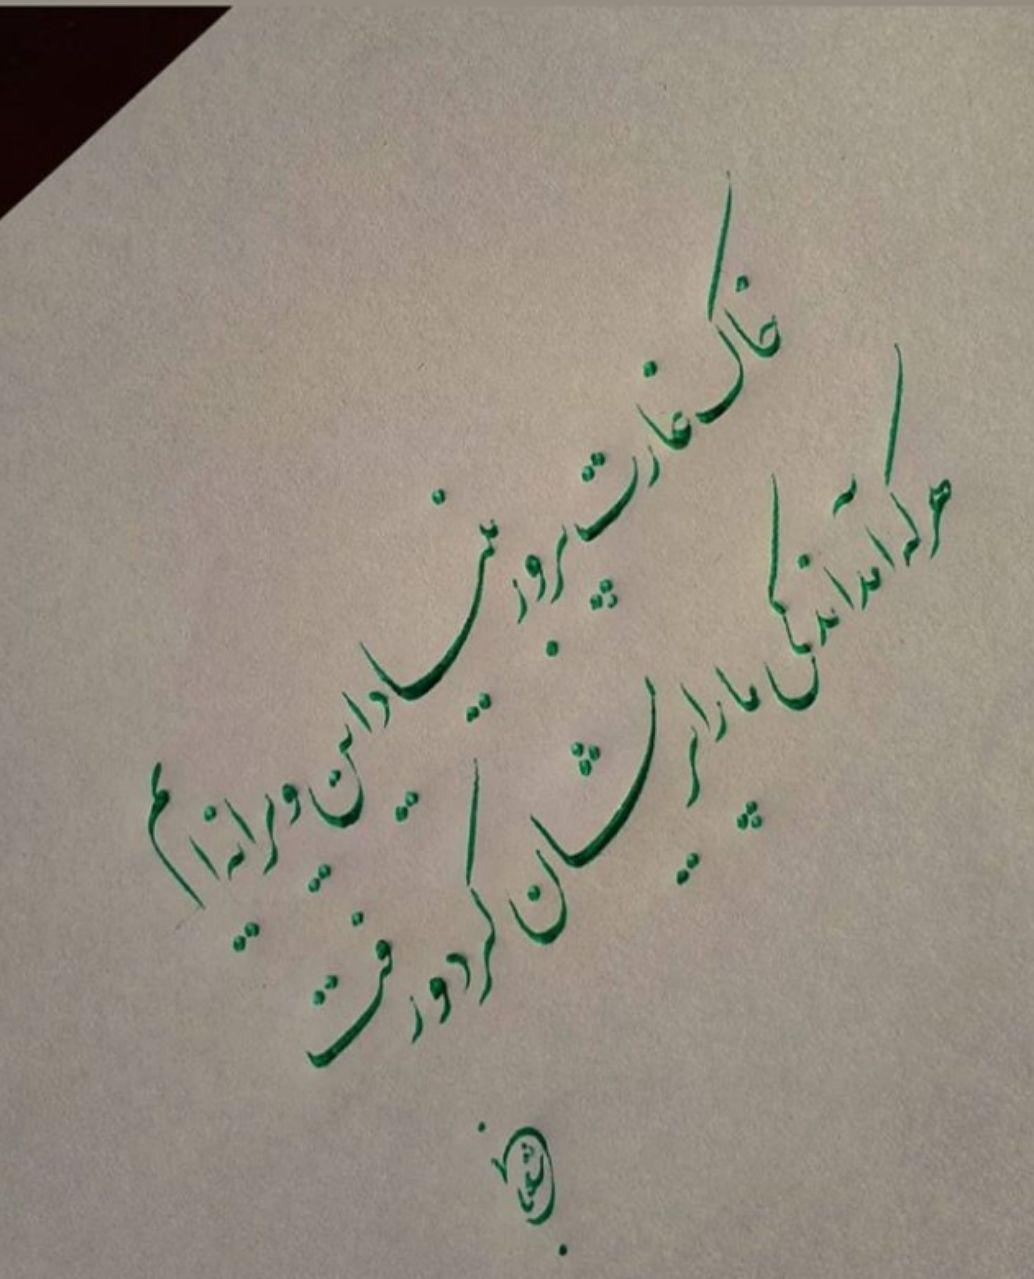 خاک غارت پرور بنیاد این ویرانه‌ایم
هرکه آمد اندکی ما را پریشان کرد و رفت